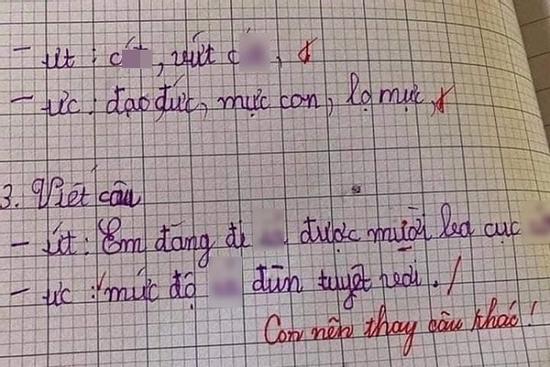 - ưt : c, vứt c,
- ưc : đạo đức, mực con, lọ mực,
3. Viết câu
- ứt : Em đang đi được mười ba cục
- ưc : mức độ đũn tuyệt vời.
Con nên thay câu khác!